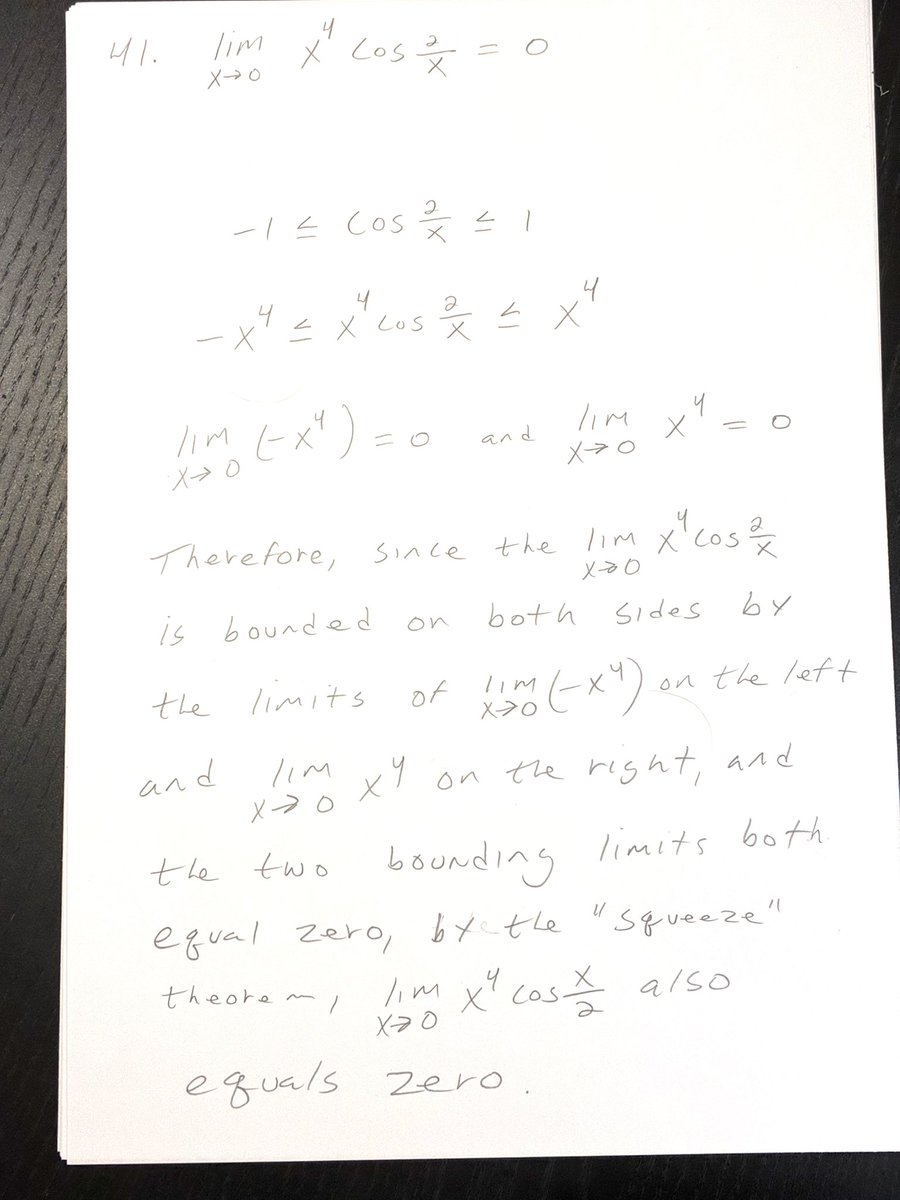 41. lim x→0 x⁴ cos 2/x = 0
-1 ≤ cos 2/x ≤ 1
-x⁴ ≤ x⁴ cos 2/x ≤ x⁴
lim x→0 (-x⁴) = 0 and lim x→0 x⁴ = 0
Therefore, since the lim x→0 x⁴ cos 2/x
is bounded on both sides by
the limits of lim x→0 (-x⁴) on the left
and lim x→0 x⁴ on the right, and
the two bounding limits both
equal zero, by the "squeeze"
theorem, lim x→0 x⁴ cos x/2 also
equals zero.